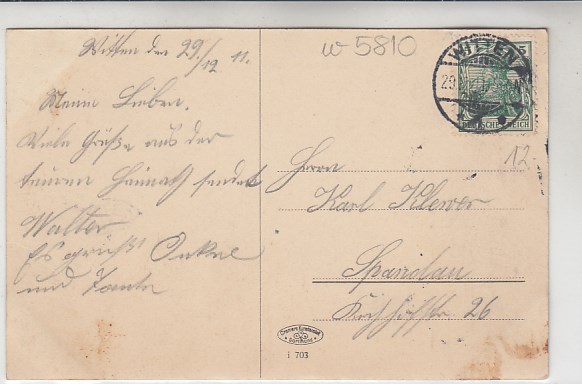 Witten den 29/12 11.
Meine Lieben.
Viele Grüße aus der
teuren Heimath sendet
Walter
Es grüßt Onkel
und Tante
w-5810
WITTEN
29.
DEUTSCHES REICH
12
Herrn
Karl Klewer
Spandau
Kirchhofstr. 26
Dortmund
I 703